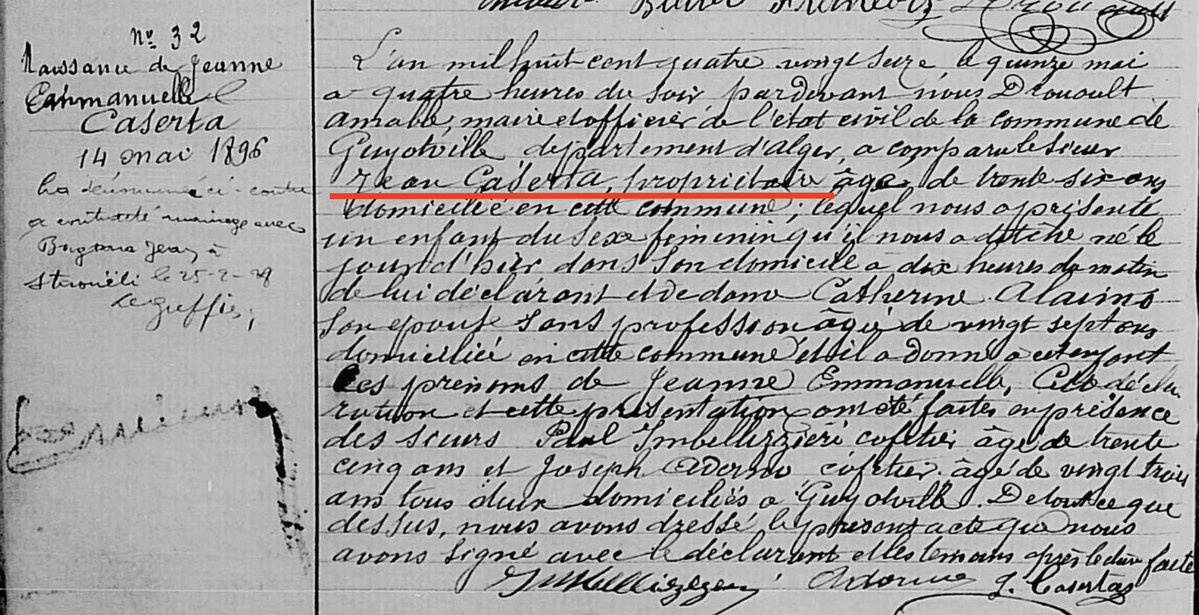 Nº 32
Naissance de Jeanne
Emmanuelle
Caserta
14 mai 1896
La dénommée ci-contre
a contracté mariage avec
Jean à
Staouëli le 25-2-29
Le greffier,
François Drouault
L'an mil huit cent quatre vingt seize, le quinze mai
a quatre heures du soir pardevant nous Drouault
Amable, maire et officier de l'état civil de la commune de
Guyotville, département d'alger, a comparu le sieur
Jean Caserta, propriétaire âgé de trente six ans
domicilié en cette commune ; lequel nous a présenté
un enfant du sexe féminin qu'il nous a dit être né le
jour d'hier dans son domicile a dix heures du matin
de lui déclarant et de dame Catherine Alaimo
son épouse sans profession âgée de vingt sept ans
domiciliée en cette commune et qu'il a donné a cet enfant
les prénoms de Jeanne Emmanuelle, Cette décla
ration et cette présentation ont été faites en présence
des sieurs Paul Imbellizzieri cafetier âgé de trente
cinq ans et Joseph Adorno cafetier âgé de vingt trois
ans tous deux domiciliés a Guyotville. De tout ce que
dessus, nous avons dressé le présent acte que nous
avons signé avec le déclarant et les témoins après lecture faite
Adorno J. Caserta